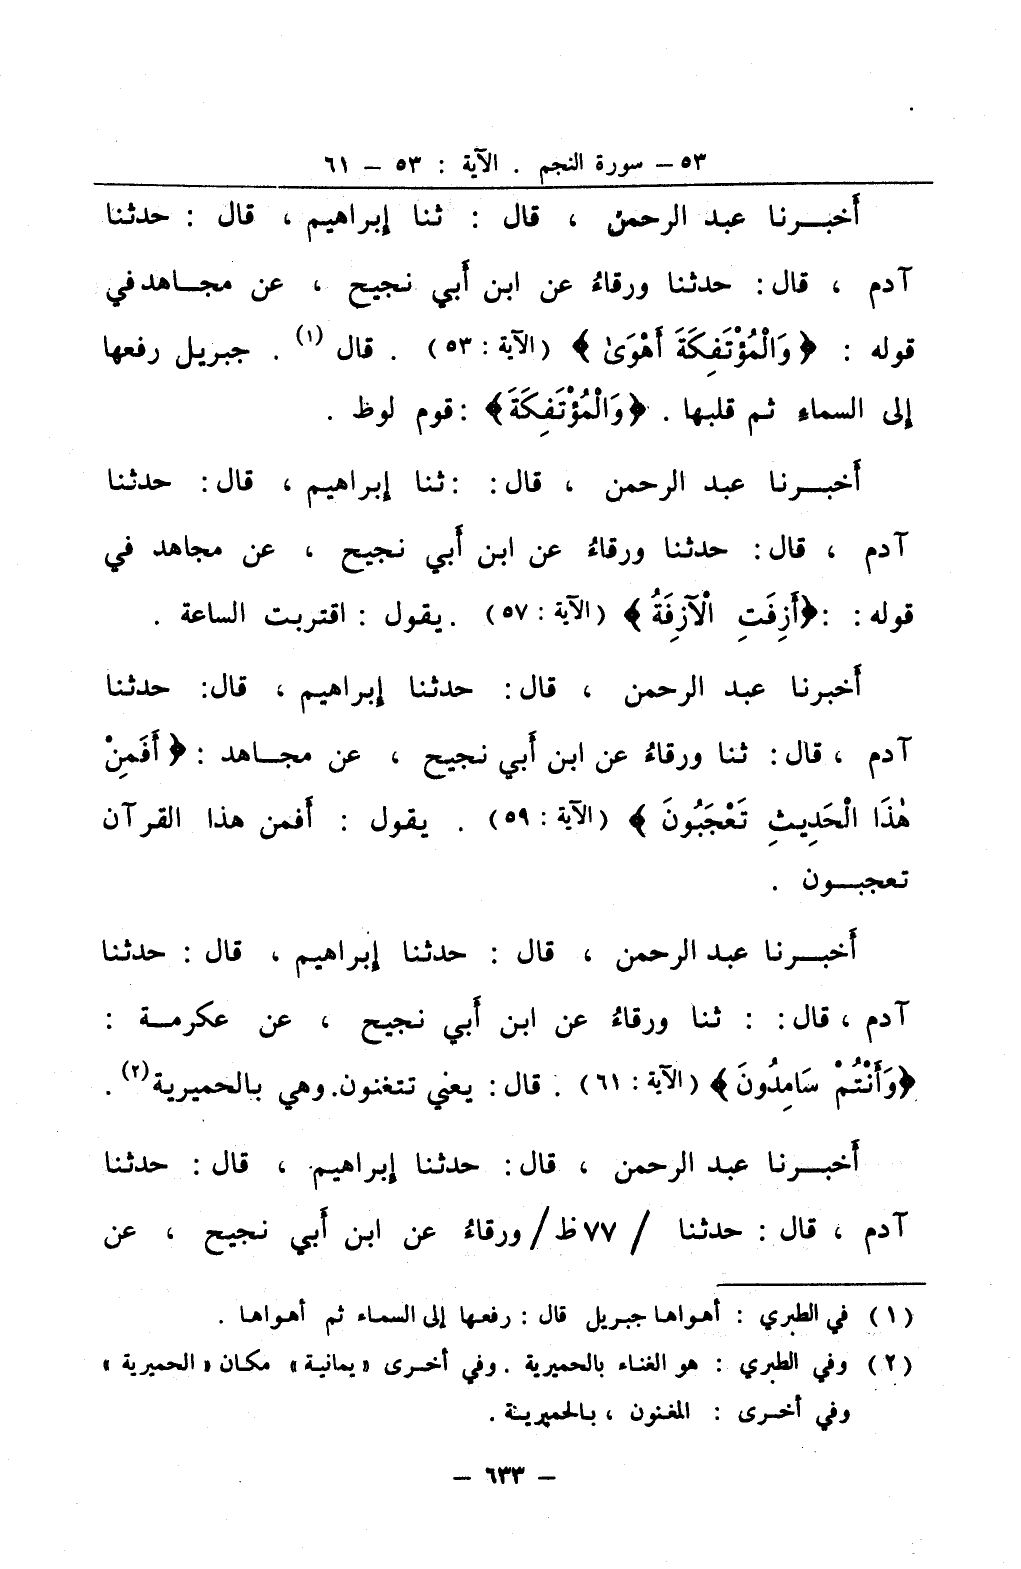 ٥٣ – سورة النجم . الآية : ٥٣ – ٦١
أخبـــرنا عبد الرحمن ، قال : ثنا إبراهيم ، قال : حدثنا
آدم ، قال : حدثنا ورقاءُ عن ابن أبي نجيح ، عن مجـاهد في
قوله : ﴿ وَالْمُؤْتَفِكَةَ أَهْوَىٰ ﴾ (الآية : ٥٣) . قال (١) . جبريل رفعها
إلى السماء ثم قلبها . ﴿وَالْمُؤْتَفِكَةَ﴾ : قوم لوظ .
أخبـــرنا عبد الرحمن ، قال : : ثنا إبراهيم ، قال : حدثنا
آدم ، قال : حدثنا ورقاءُ عن ابن أبي نجيح ، عن مجاهد في
قوله : : ﴿أَزِفَتِ الْآزِفَةُ ﴾ (الآية : ٥٧) . يقول : اقتربت الساعة .
أخبرنا عبد الرحمن ، قال : حدثنا إبراهيم ، قال: حدثنا
آدم ، قال : ثنا ورقاءُ عن ابن أبي نجيح ، عن مجـاهد : ﴿ أَفَمِنْ
هٰذَا الْحَدِيثِ تَعْجَبُونَ ﴾ (الآية : ٥٩) . يقول : أفمن هذا القرآن
تعجبـــون .
أخبـــرنا عبد الرحمن ، قال : حدثنا إبراهيم ، قال : حدثنا
آدم ، قال : : ثنا ورقاءُ عن ابن أبي نجيح ، عن عكرمـة :
﴿وَأَنْتُمْ سَامِدُونَ ﴾ (الآية : ٦١) . قال : يعني تتغنون. وهي بالحميرية(٢) .
أخبـــرنا عبد الرحمن ، قال : حدثنا إبراهيم ، قال : حدثنا
آدم ، قال : حدثنا / ٧٧ظ/ ورقاءُ عن ابن أبي نجيح ، عن
(١) في الطبري : أهواها جبريل قال : رفعها إلى السماء ثم أهواها .
(٢) وفي الطبري : هو الغناء بالحميرية . وفي أخرى «يمانية» مكان «الحميرية»
وفي أخرى : المغنون ، بالحميرية .
– ٦٣٣ –